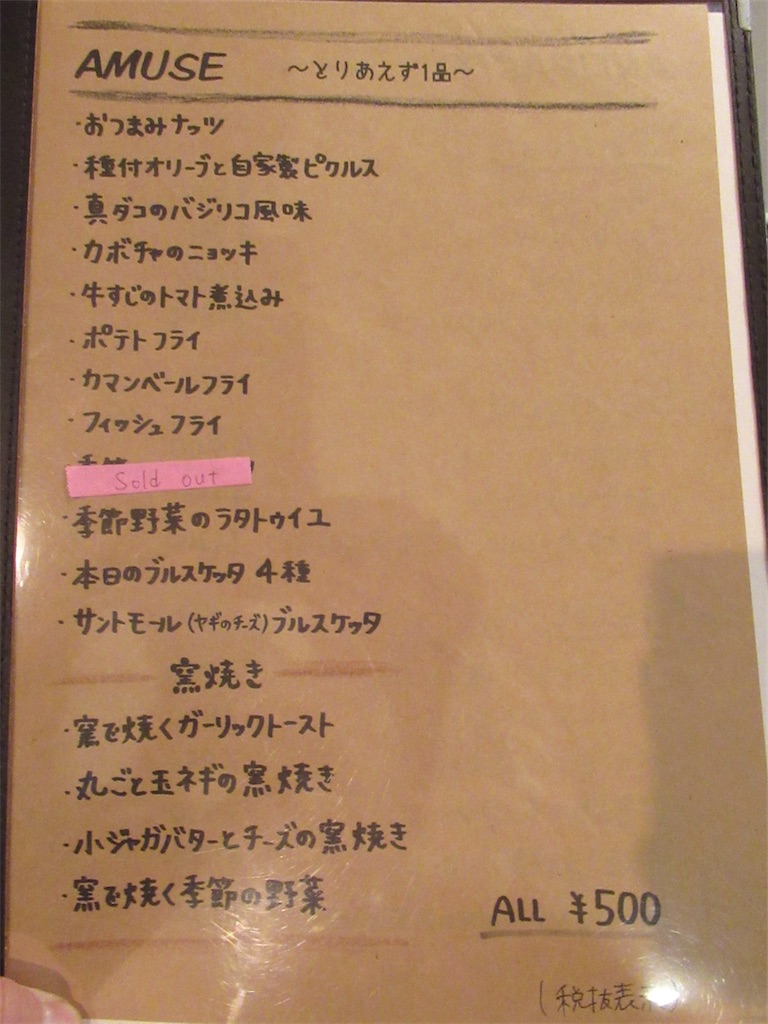 AMUSE ～とりあえず1品～
・おつまみナッツ
・種付オリーブと自家製ピクルス
・真ダコのバジリコ風味
・カボチャのニョッキ
・牛すじのトマト煮込み
・ポテトフライ
・カマンベールフライ
・フィッシュフライ
Sold out
・季節野菜のラタトゥイユ
・本日のブルスケッタ 4種
・サントモール(ヤギのチーズ)ブルスケッタ
窯焼き
・窯で焼くガーリックトースト
・丸ごと玉ネギの窯焼き
・小ジャガバターとチーズの窯焼き
・窯で焼く季節の野菜
ALL ¥500
(税抜表示)